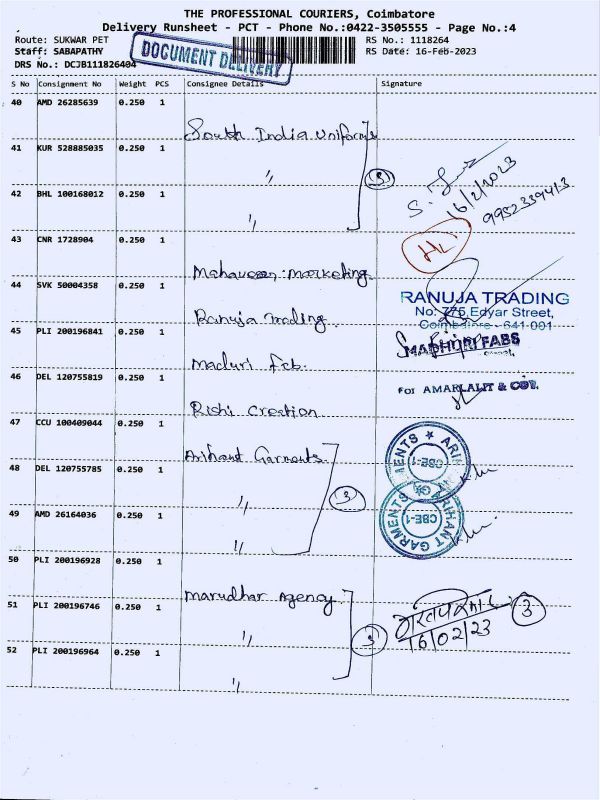 THE PROFESSIONAL COURIERS, Coimbatore
Delivery Runsheet - PCT - Phone No.:0422-3505555 - Page No.:4
Route: SUKWAR PET
RS No.: 1118264
Staff: SABAPATHY
RS Date: 16-Feb-2023
DRS No.: DCJB111826404
DOCUMENT DELIVERY
S No Consignment No Weight PCS Consignee Details Signature
40 AMD 26285639 0.250 1
South India Uniforms
41 KUR 528885035 0.250 1
〃
S.
16/2/2023
9952339413
(3)
42 BHL 100168012 0.250 1
〃
43 CNR 1728904 0.250 1
Mahaveer marketing
44 SVK 50004358 0.250 1
RANUJA TRADING
No: 775, Edyar Street,
Coimbatore - 641 001
Ranuja trading
45 PLI 200196841 0.250 1
MADHURI FABS
Maduri Feb.
46 DEL 120755819 0.250 1
For AMARLALIT & COT.
Rishi Creation
47 CCU 100409044 0.250 1
Arihant Garments
ARIHANT GARMENTS CBE-1
48 DEL 120755785 0.250 1
〃
3
ARIHANT GARMENTS CBE-1
49 AMD 26164036 0.250 1
〃
50 PLI 200196928 0.250 1
Marudhar Agency
51 PLI 200196746 0.250 1
〃
3
16/02/23
3
52 PLI 200196964 0.250 1
〃